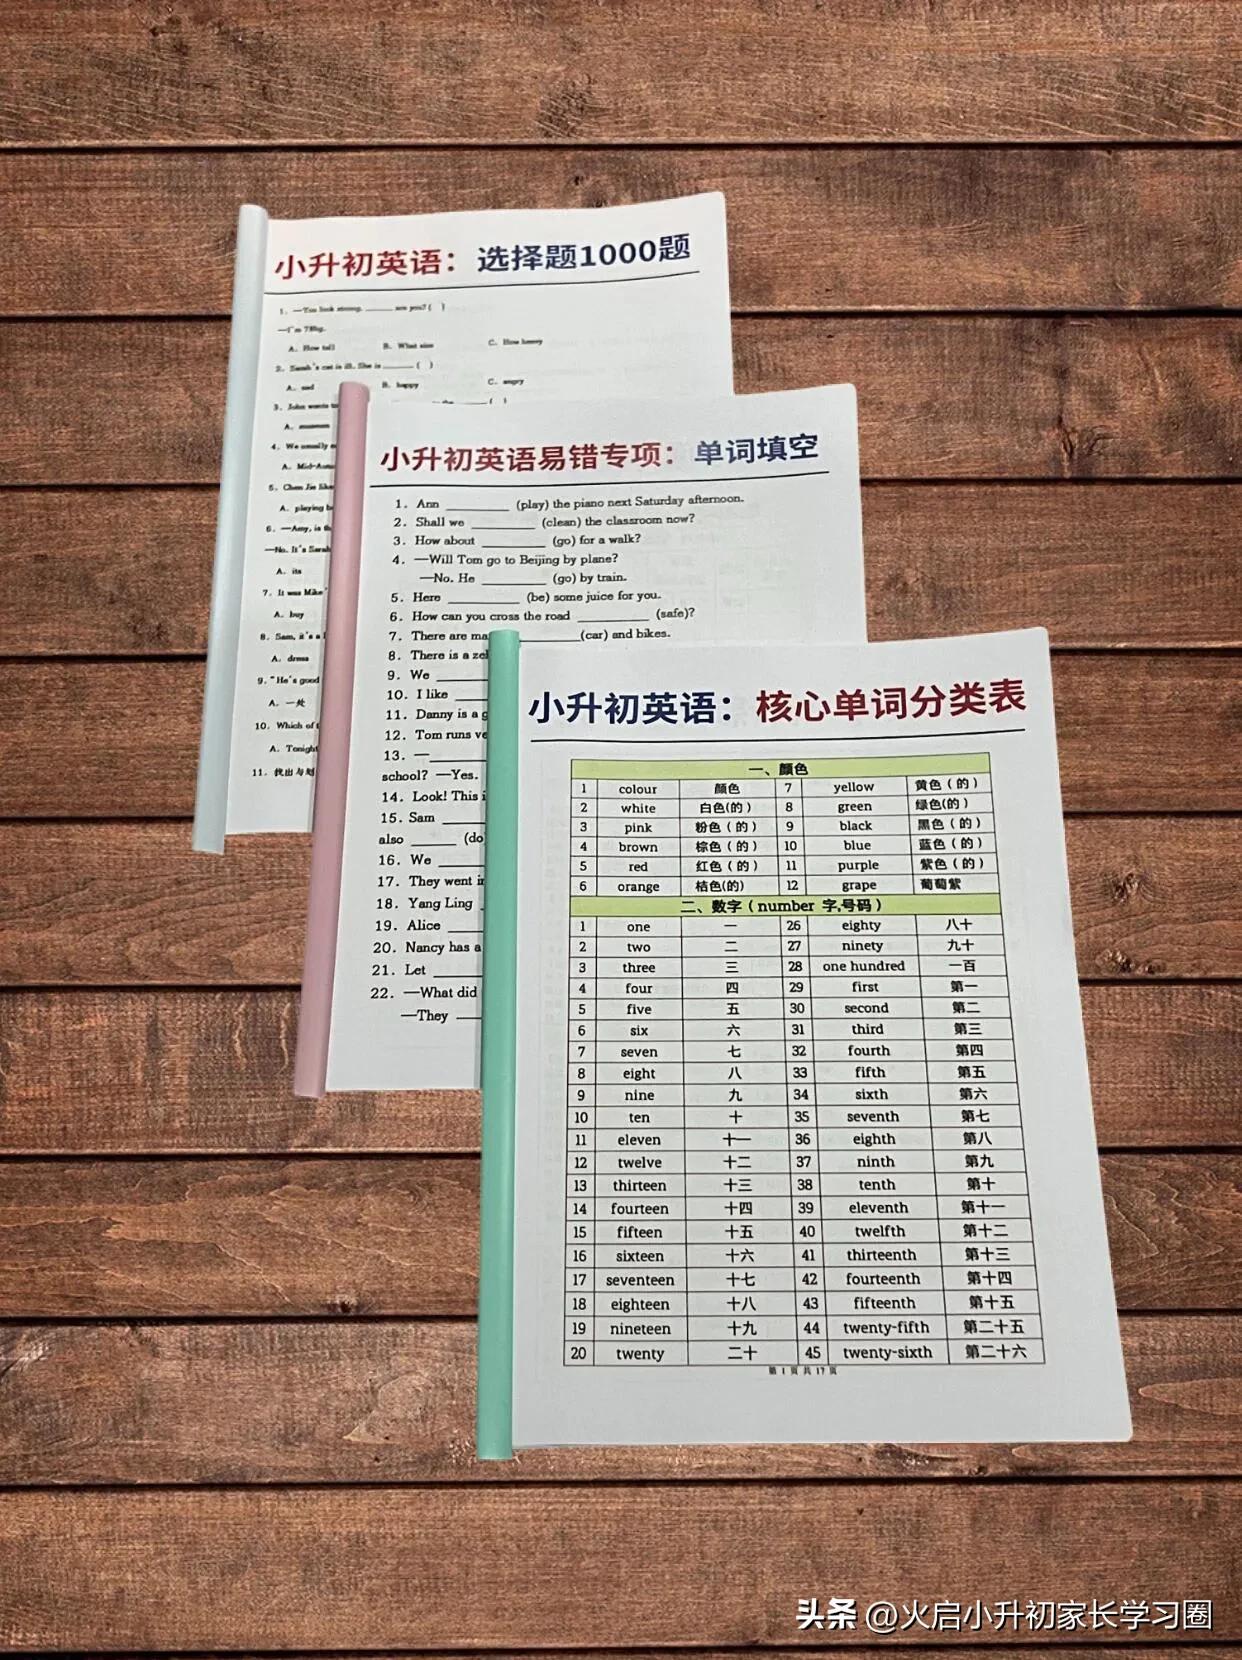 小升初英语：选择题1000题
1. —You look strong. ______ are you? ( )
—I'm 78kg.
A. How tall B. What size C. How heavy
2. Sarah's cat is ill. She is ______ ( )
A. sad B. happy C. angry
3. John wants to
A. museum
4. We usually
A. Mid-Autu
5. Chen Jie like
A. playing b
6. —Amy, is th
—No. It's Sarah
A. its
7. It was Mike'
A. buy
8. Sam, it's a
A. dress
9. "He's good
A. 一处
10. Which of t
A. Tonight
11. 找出与划
小升初英语易错专项：单词填空
1. Ann ________ (play) the piano next Saturday afternoon.
2. Shall we ________ (clean) the classroom now?
3. How about ________ (go) for a walk?
4. —Will Tom go to Beijing by plane?
—No. He ________ (go) by train.
5. Here ________ (be) some juice for you.
6. How can you cross the road ________ (safe)?
7. There are ma ________(car) and bikes.
8. There is a ze
9. We ____
10. I like ____
11. Danny is a g
12. Tom runs ve
13. —____
school? —Yes.
14. Look! This i
15. Sam ____
also ____ (do
16. We ____
17. They went i
18. Yang Ling
19. Alice ____
20. Nancy has a
21. Let ____
22. —What did
—They ____
小升初英语：核心单词分类表
一、颜色
1 colour 颜色 7 yellow 黄色（的）
2 white 白色(的） 8 green 绿色(的）
3 pink 粉色（的） 9 black 黑色（的）
4 brown 棕色（的） 10 blue 蓝色（的）
5 red 红色（的） 11 purple 紫色（的）
6 orange 桔色(的) 12 grape 葡萄紫
二、数字（number 字,号码）
1 one 一 26 eighty 八十
2 two 二 27 ninety 九十
3 three 三 28 one hundred 一百
4 four 四 29 first 第一
5 five 五 30 second 第二
6 six 六 31 third 第三
7 seven 七 32 fourth 第四
8 eight 八 33 fifth 第五
9 nine 九 34 sixth 第六
10 ten 十 35 seventh 第七
11 eleven 十一 36 eighth 第八
12 twelve 十二 37 ninth 第九
13 thirteen 十三 38 tenth 第十
14 fourteen 十四 39 eleventh 第十一
15 fifteen 十五 40 twelfth 第十二
16 sixteen 十六 41 thirteenth 第十三
17 seventeen 十七 42 fourteenth 第十四
18 eighteen 十八 43 fifteenth 第十五
19 nineteen 十九 44 twenty-fifth 第二十五
20 twenty 二十 45 twenty-sixth 第二十六
第 1 页 共 17 页
头条 @火启小升初家长学习圈